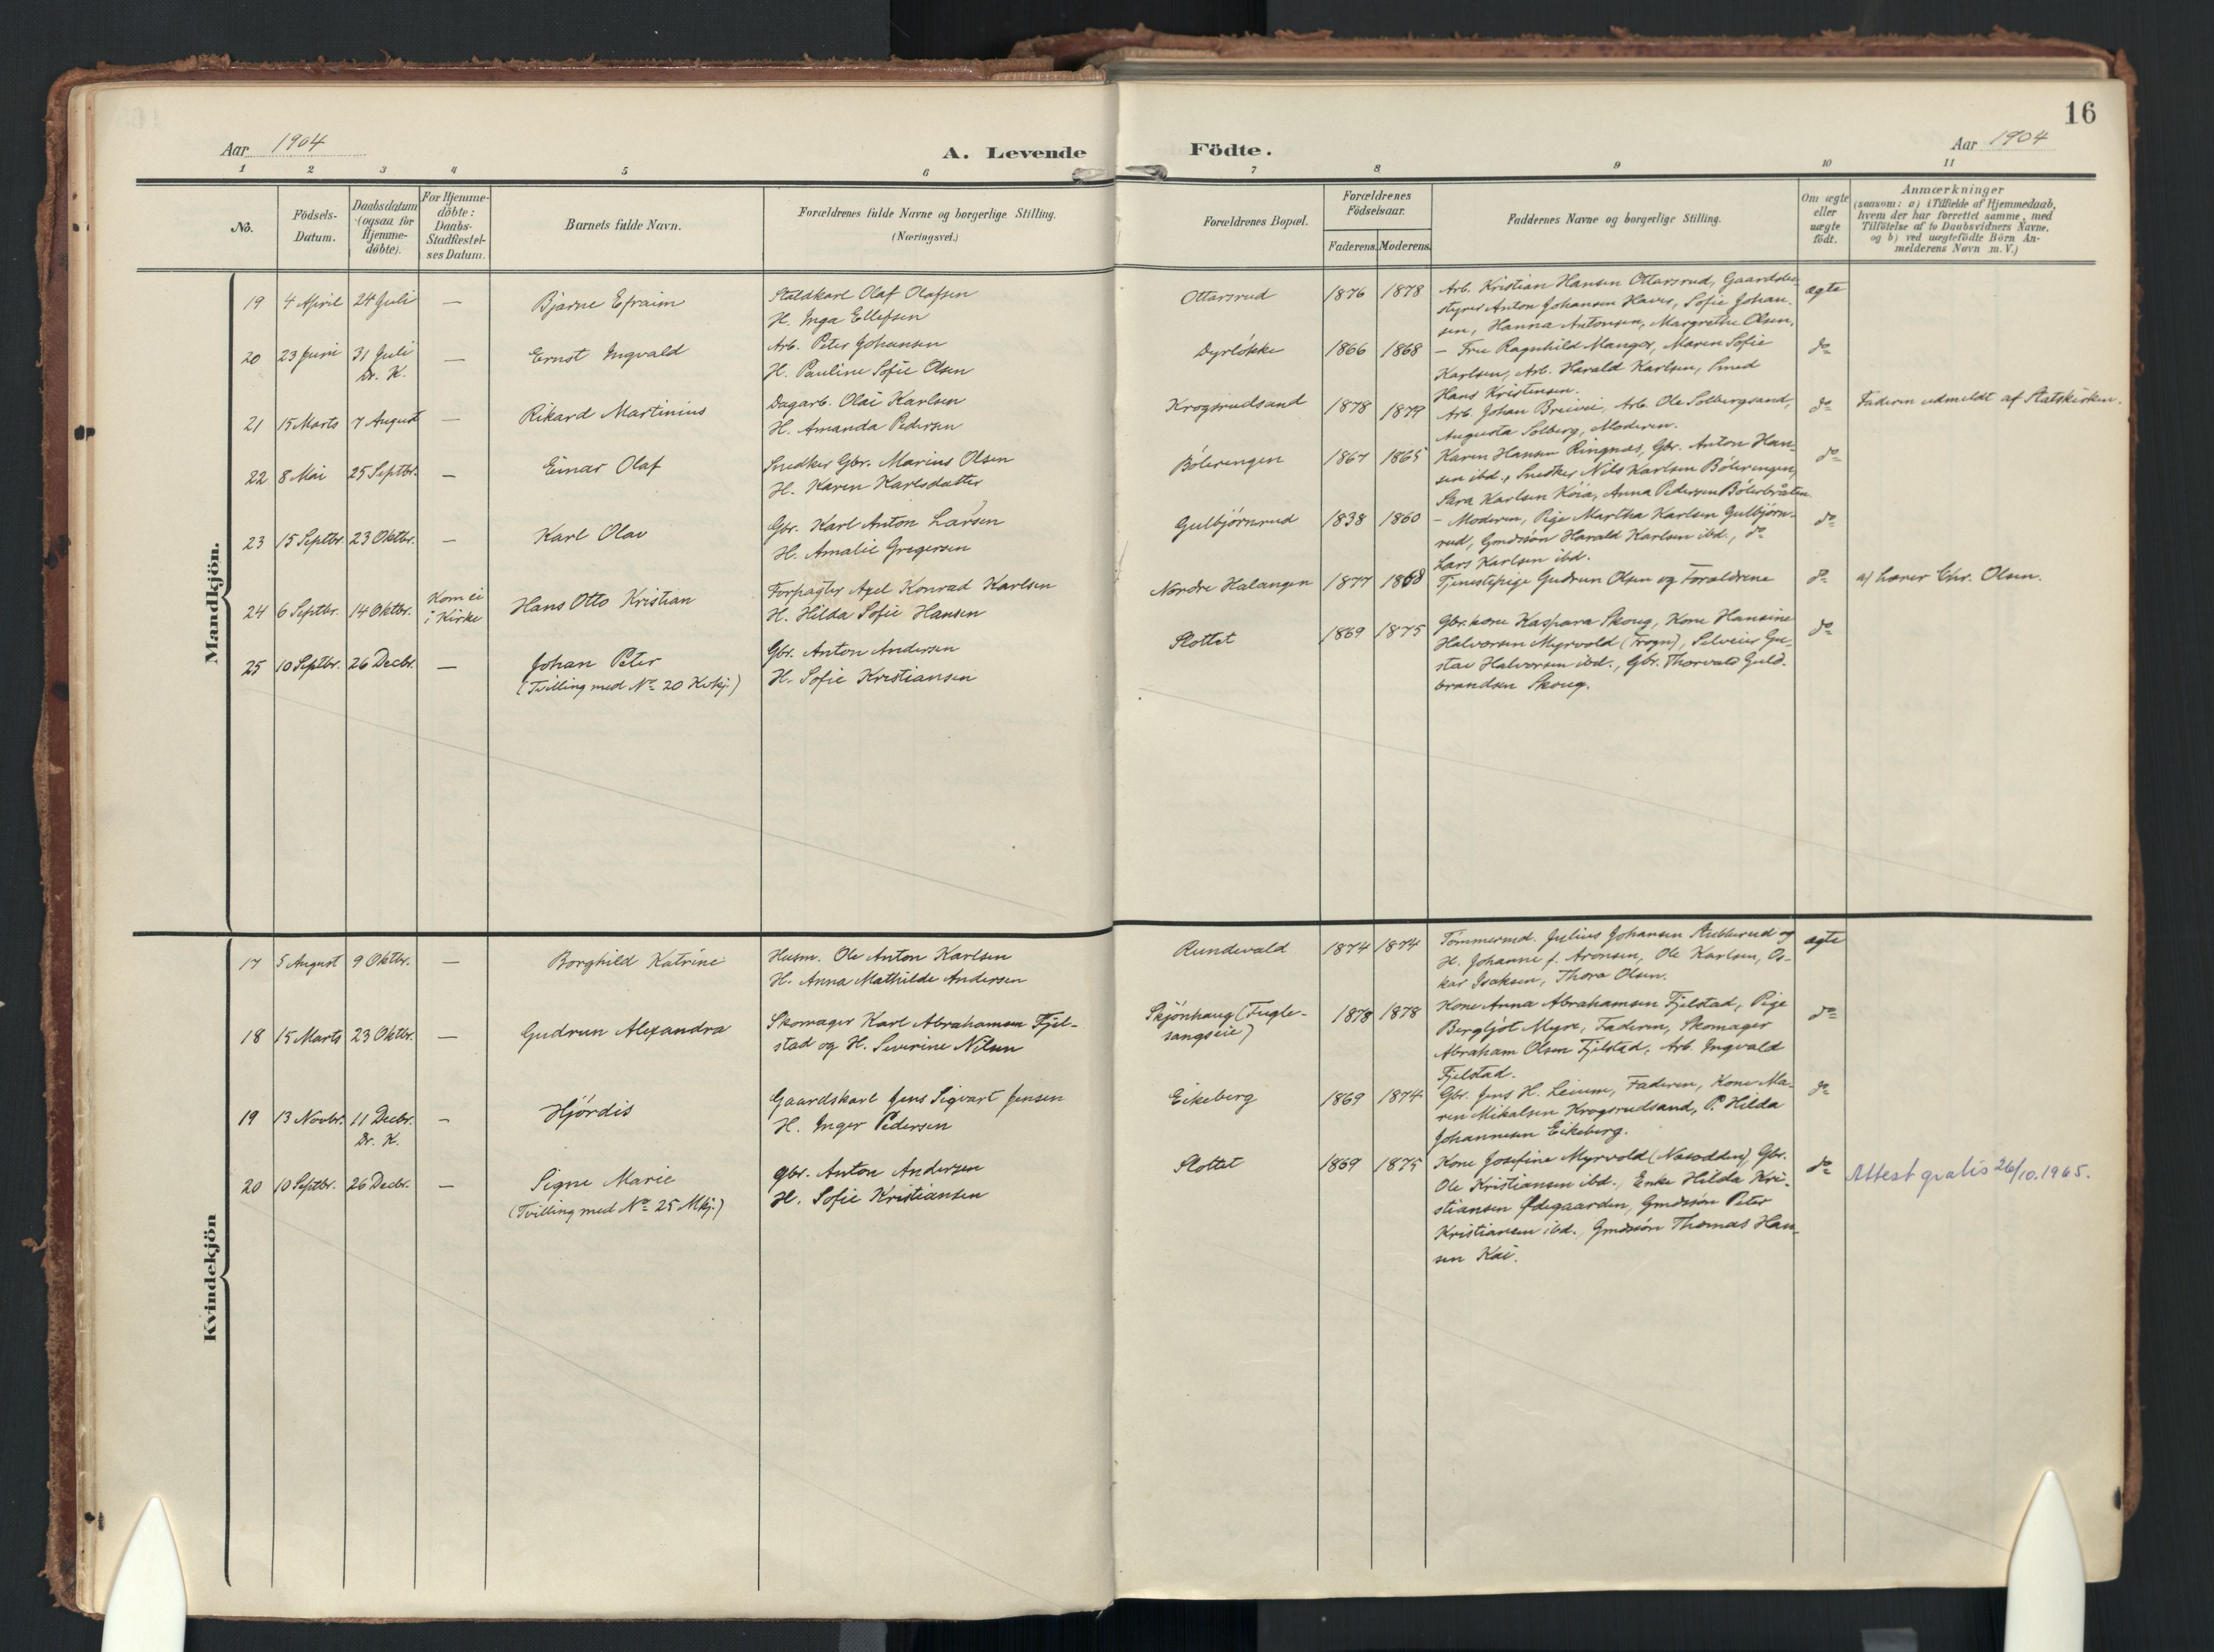 16
Aar 1904
A. Levende
Födte.
Aar 1904
1 2 3 4 5 6 7 8 9 10 11
No.
Födsels-
Datum.
Daabsdatum
(ogsaa for
Hjemme-
döbte).
For Hjemme-
döbte:
Daabs-
Stadfæstel-
ses Datum.
Barnets fulde Navn.
Forældrenes fulde Navne og borgerlige Stilling.
(Næringsvei.)
Forældrenes Bopæl.
Forældrenes
Födselsaar.
Faderens. Moderens.
Faddernes Navne og borgerlige Stilling.
Om ægte
eller
uægte
födt.
Anmærkninger
(saasom: a) i Tilfælde af Hjemmedaab,
hvem der har forrettet samme, med
Tilföielse af to Daabsvidners Navne.
og b) ved uægtefödte Börn An-
melderens Navn m. V.)
Mandkjön.
19 4 April 24 Juli — Bjarne Efraim
Staldkarl Olaf Olafsen
H. Inga Ellefsen
Ottarsrud 1876 1878
Arb. Kristian Hansen Ottarsrud, Gaardsbe-
styrer Anton Johansen Haver, Sofie Johan-
sen, Hanna Antonsen, Margrethe Olsen.
ægte
20 23 Juni 31 Juli — Ernst Ingvald
Dr. K.
Arb. Peter Johansen
H. Pauline Sofie Olsen
Dyrløkke 1866 1868
— Fru Ragnhild Manger, Maren Sofie
Karlsen, Arb. Harald Karlsen, Smed
Hans Kristensen.
do
21 15 Marts 7 August — Rikard Martinius
Dagarb. Olai Karlsen
H. Amanda Pedersen
Krogsrudsand 1878 1879
Arb. Johan Breivei, Arb. Ole Solbergsand,
Augusta Solberg, Moderen.
do
Faderen udmeldt af Statskirken.
22 8 Mai 25 Septbr. — Einar Olaf
Snedker Gbr. Marius Olsen
H. Karen Karlsdatter
Bölerengen 1867 1865
Karen Hansen Ringnes, Gbr. Anton Han-
sen ibd., Snedker Nils Karlsen Bölerengen,
Sara Karlsen Koia, Anna Pedersen Bölerbråten
do
23 15 Septbr 23 Oktbr. — Karl Olav
Gbr. Karl Anton Larsen
H. Amalie Gregersen
Gulbjörnrud 1838 1860
— Moderen, Pige Martha Karlsen Gulbjörn-
rud, Gmdsön Harald Karlsen ibd., do
Lars Karlsen ibd.
do
24 6 Septbr. 14 Oktbr. Kom ei
i Kirke
Hans Otto Kristian
Forpagter Axel Konrad Karlsen
H. Hilda Sofie Hansen
Nordre Halangen 1877 1868
Tjenestepige Gudrun Olsen og Forældrene
do
a) Lærer Chr. Olsen.
25 10 Septbr. 26 Decbr. — Johan Peter
(Tvilling med No 20 Kvkj.)
Gbr. Anton Andersen
H. Sofie Kristiansen
Slottet 1869 1875
Gbr.kone Kaspara Skoug, Kone Hansine
Halvorsen Myrvold (Frogn), Selveier Gu-
stav Halvorsen ibd., Gbr. Thorvald Guld-
brandsen Skoug.
do
Kvindekjön
17 5 August 9 Oktbr. — Borghild Katrine
Husm. Ole Anton Karlsen
H. Anna Mathilde Andersen
Rundvald 1874 1874
Tömmermd. Julius Johansen Stubberud og
H. Johanne f. Aronsen, Ole Karlsen, Os-
kar Isaksen, Thora Olsen.
ægte
18 15 Marts 23 Oktbr. — Gudrun Alexandra
Skomager Karl Abrahamsen Fjel-
stad og H. Severine Nilsen
Skjönhaug (Fugle-
sangseie)
1878 1878
Kone Anna Abrahamsen Fjelstad, Pige
Bergljot Myre, Faderen, Skomager
Abraham Olsen Fjelstad, Arb. Ingvald
Fjelstad.
do
19 13 Novbr. 11 Decbr. — Hjördis
Dr. K.
Gaardskarl Jens Sigvart Jensen
H. Inger Pedersen
Eikeberg 1869 1874
Gbr. Jens H. Leium, Faderen, Kone Ma-
ren Mikalsen Krogsrudsand, P. Hilda
Johannesen Eikeberg.
do
20 10 Septbr. 26 Decbr. — Signe Marie
(Tvilling med No 25 Mkj.)
Gbr. Anton Andersen
H. Sofie Kristiansen
Slottet 1869 1875
Kone Josefine Myrvold (Nesodden), Gbr.
Ole Kristiansen ibd., Enke Hilda Kri-
stiansen Ödegaarden, Gmdssön Peter
Kristiansen ibd., Gmdssön Thomas Han-
sen Kai.
do
Attest gratis 26/10.1965.